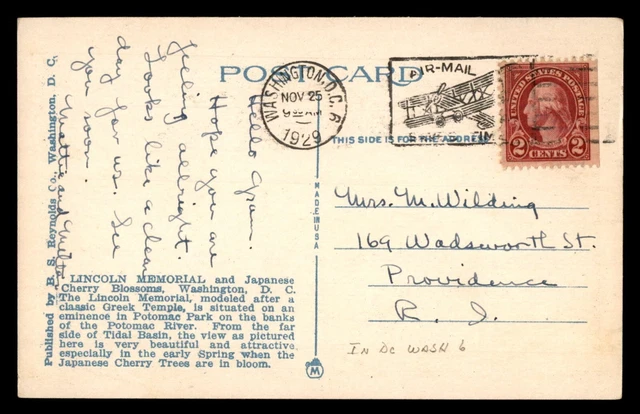 POST CARD
WASHINGTON, D.C. 6
NOV 25
9 AM
1929
AIR-MAIL
UNITED STATES POSTAGE
2 CENTS 2
THIS SIDE IS FOR THE ADDRESS
Hello Gram.
Hope you are
feeling allright.
Looks like a clear
day for us. See
you soon.
Mattie and Milton
Mrs. M. Wilding
169 Wadsworth St.
Providence
R. I.
IN DC WASH 6
MADE IN USA
Published by B. S. Reynolds Co., Washington, D. C.
LINCOLN MEMORIAL and Japanese
Cherry Blossoms, Washington, D. C.
The Lincoln Memorial, modeled after a
classic Greek Temple, is situated on an
eminence in Potomac Park on the banks
of the Potomac River. From the far
side of Tidal Basin, the view as pictured
here is very beautiful and attractive
especially in the early Spring when the
Japanese Cherry Trees are in bloom.
M